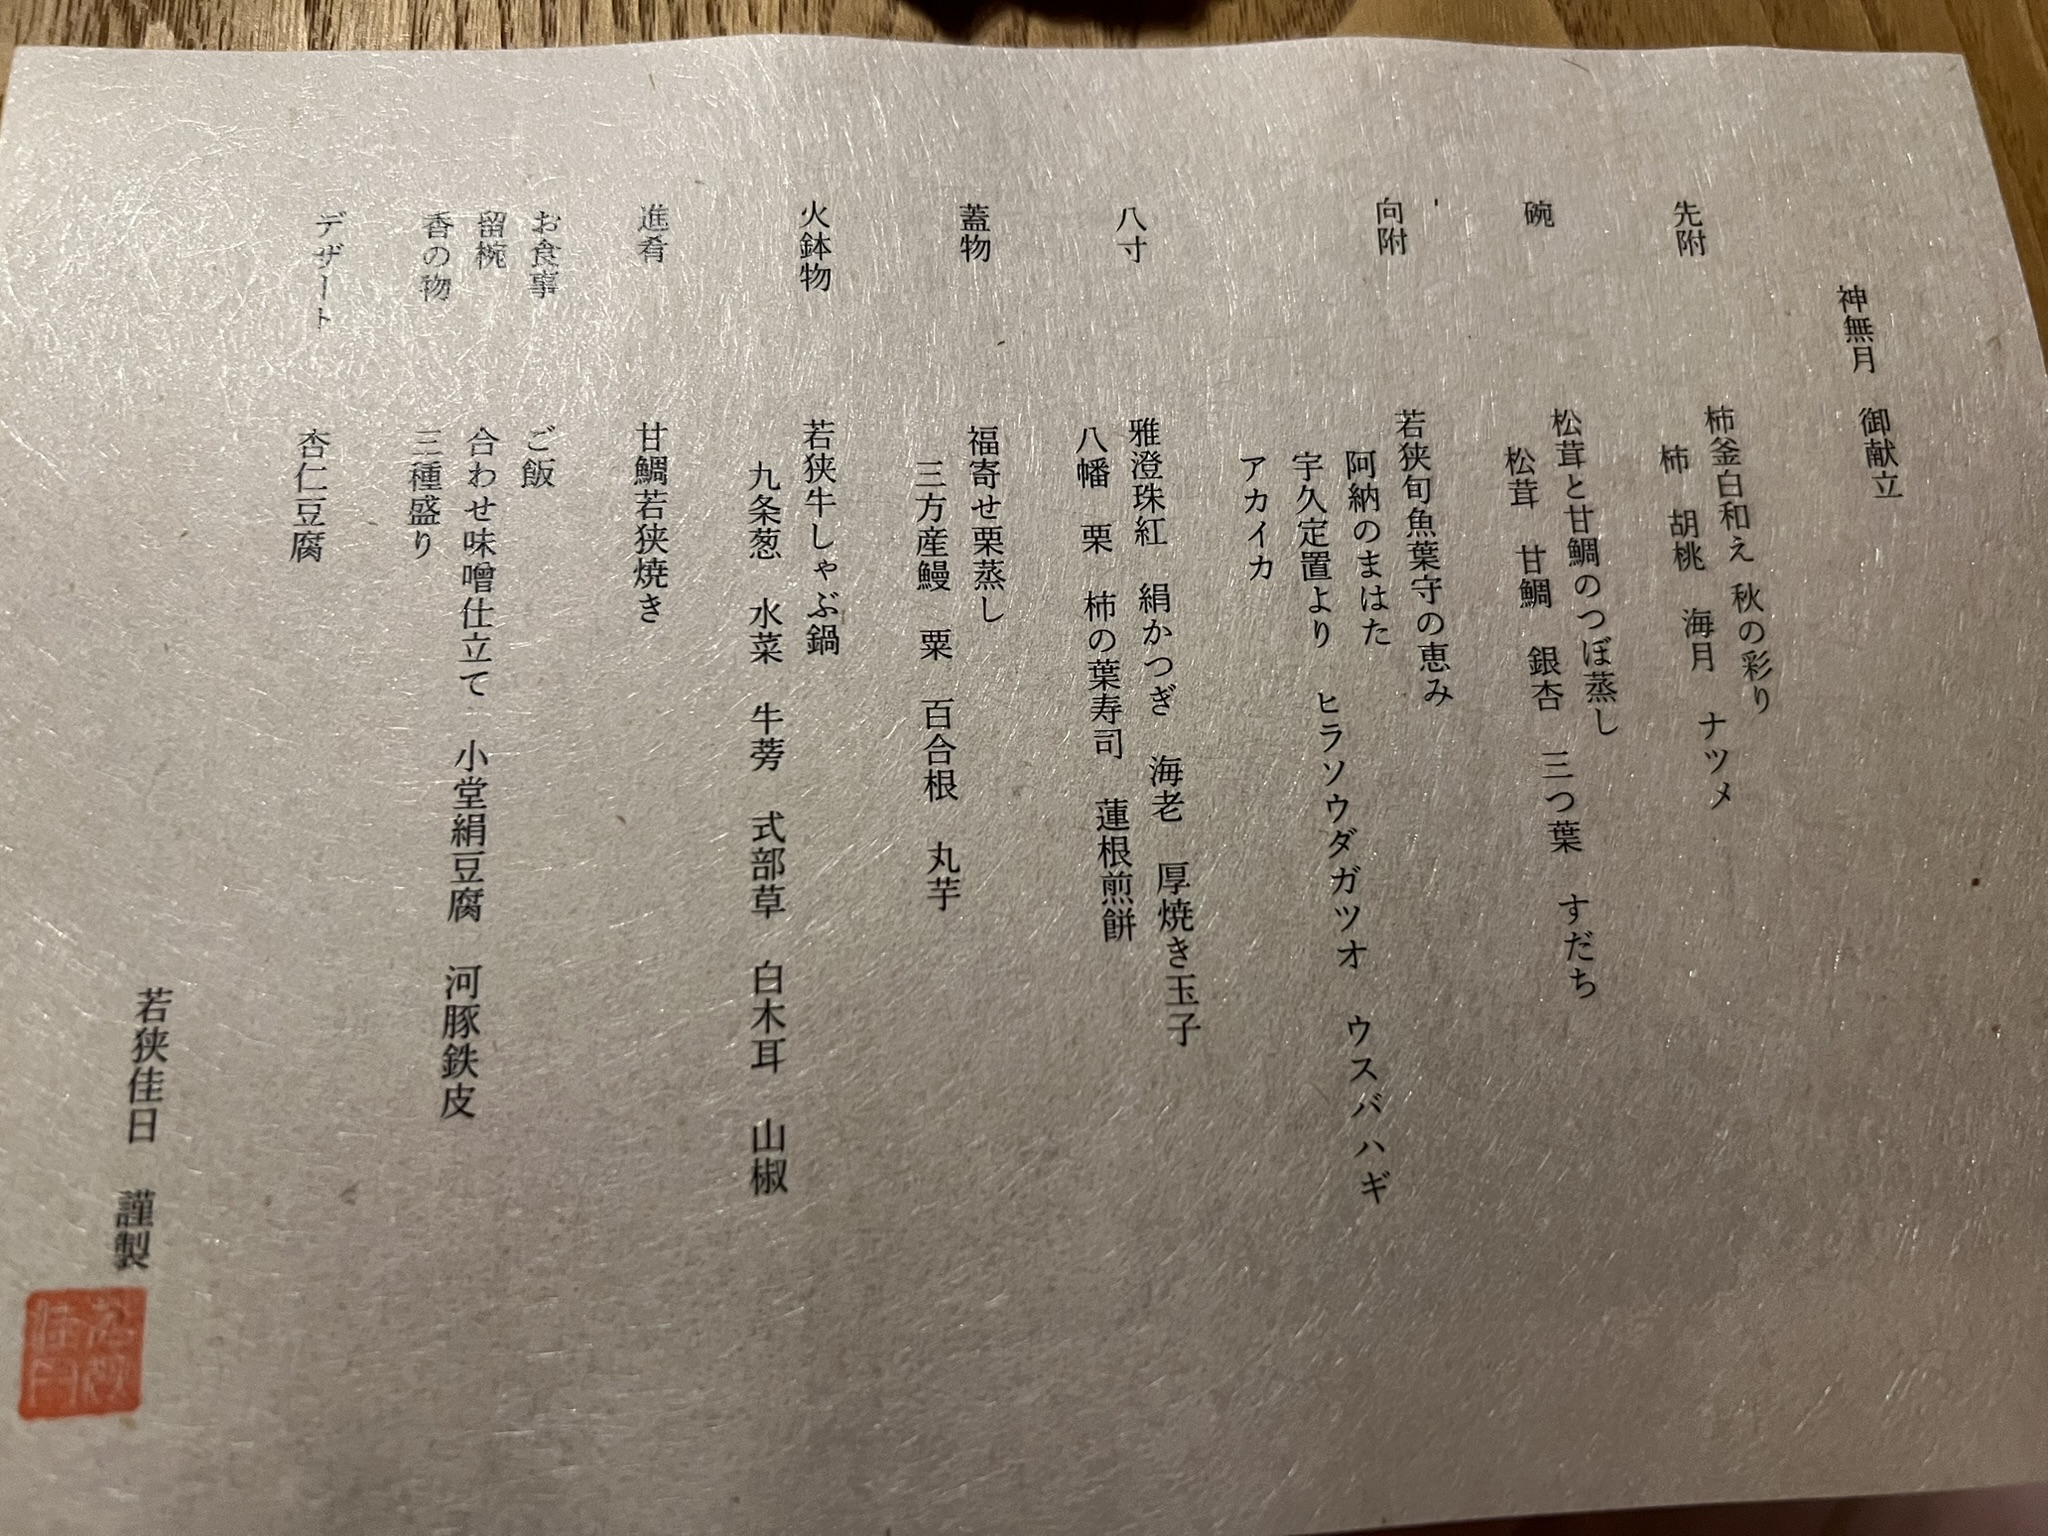 神無月　御献立
先附
柿釜白和え　秋の彩り
柿　胡桃　海月　ナツメ
碗
松茸と甘鯛のつぼ蒸し
松茸　甘鯛　銀杏　三つ葉　すだち
向附
若狭旬魚葉守の恵み
阿納のまはた
宇久定置より　ヒラソウダガツオ　ウスバハギ
アカイカ
八寸
雅澄珠紅　絹かつぎ　海老　厚焼き玉子
八幡　栗　柿の葉寿司　蓮根煎餅
蓋物
福寄せ栗蒸し
三方産鰻　粟　百合根　丸芋
火鉢物
若狭牛しゃぶ鍋
九条葱　水菜　牛蒡　式部草　白木耳　山椒
進肴
甘鯛若狭焼き
お食事
ご飯
留椀
合わせ味噌仕立て　小堂絹豆腐　河豚鉄皮
香の物
三種盛り
デザート
杏仁豆腐
若狭佳日　謹製